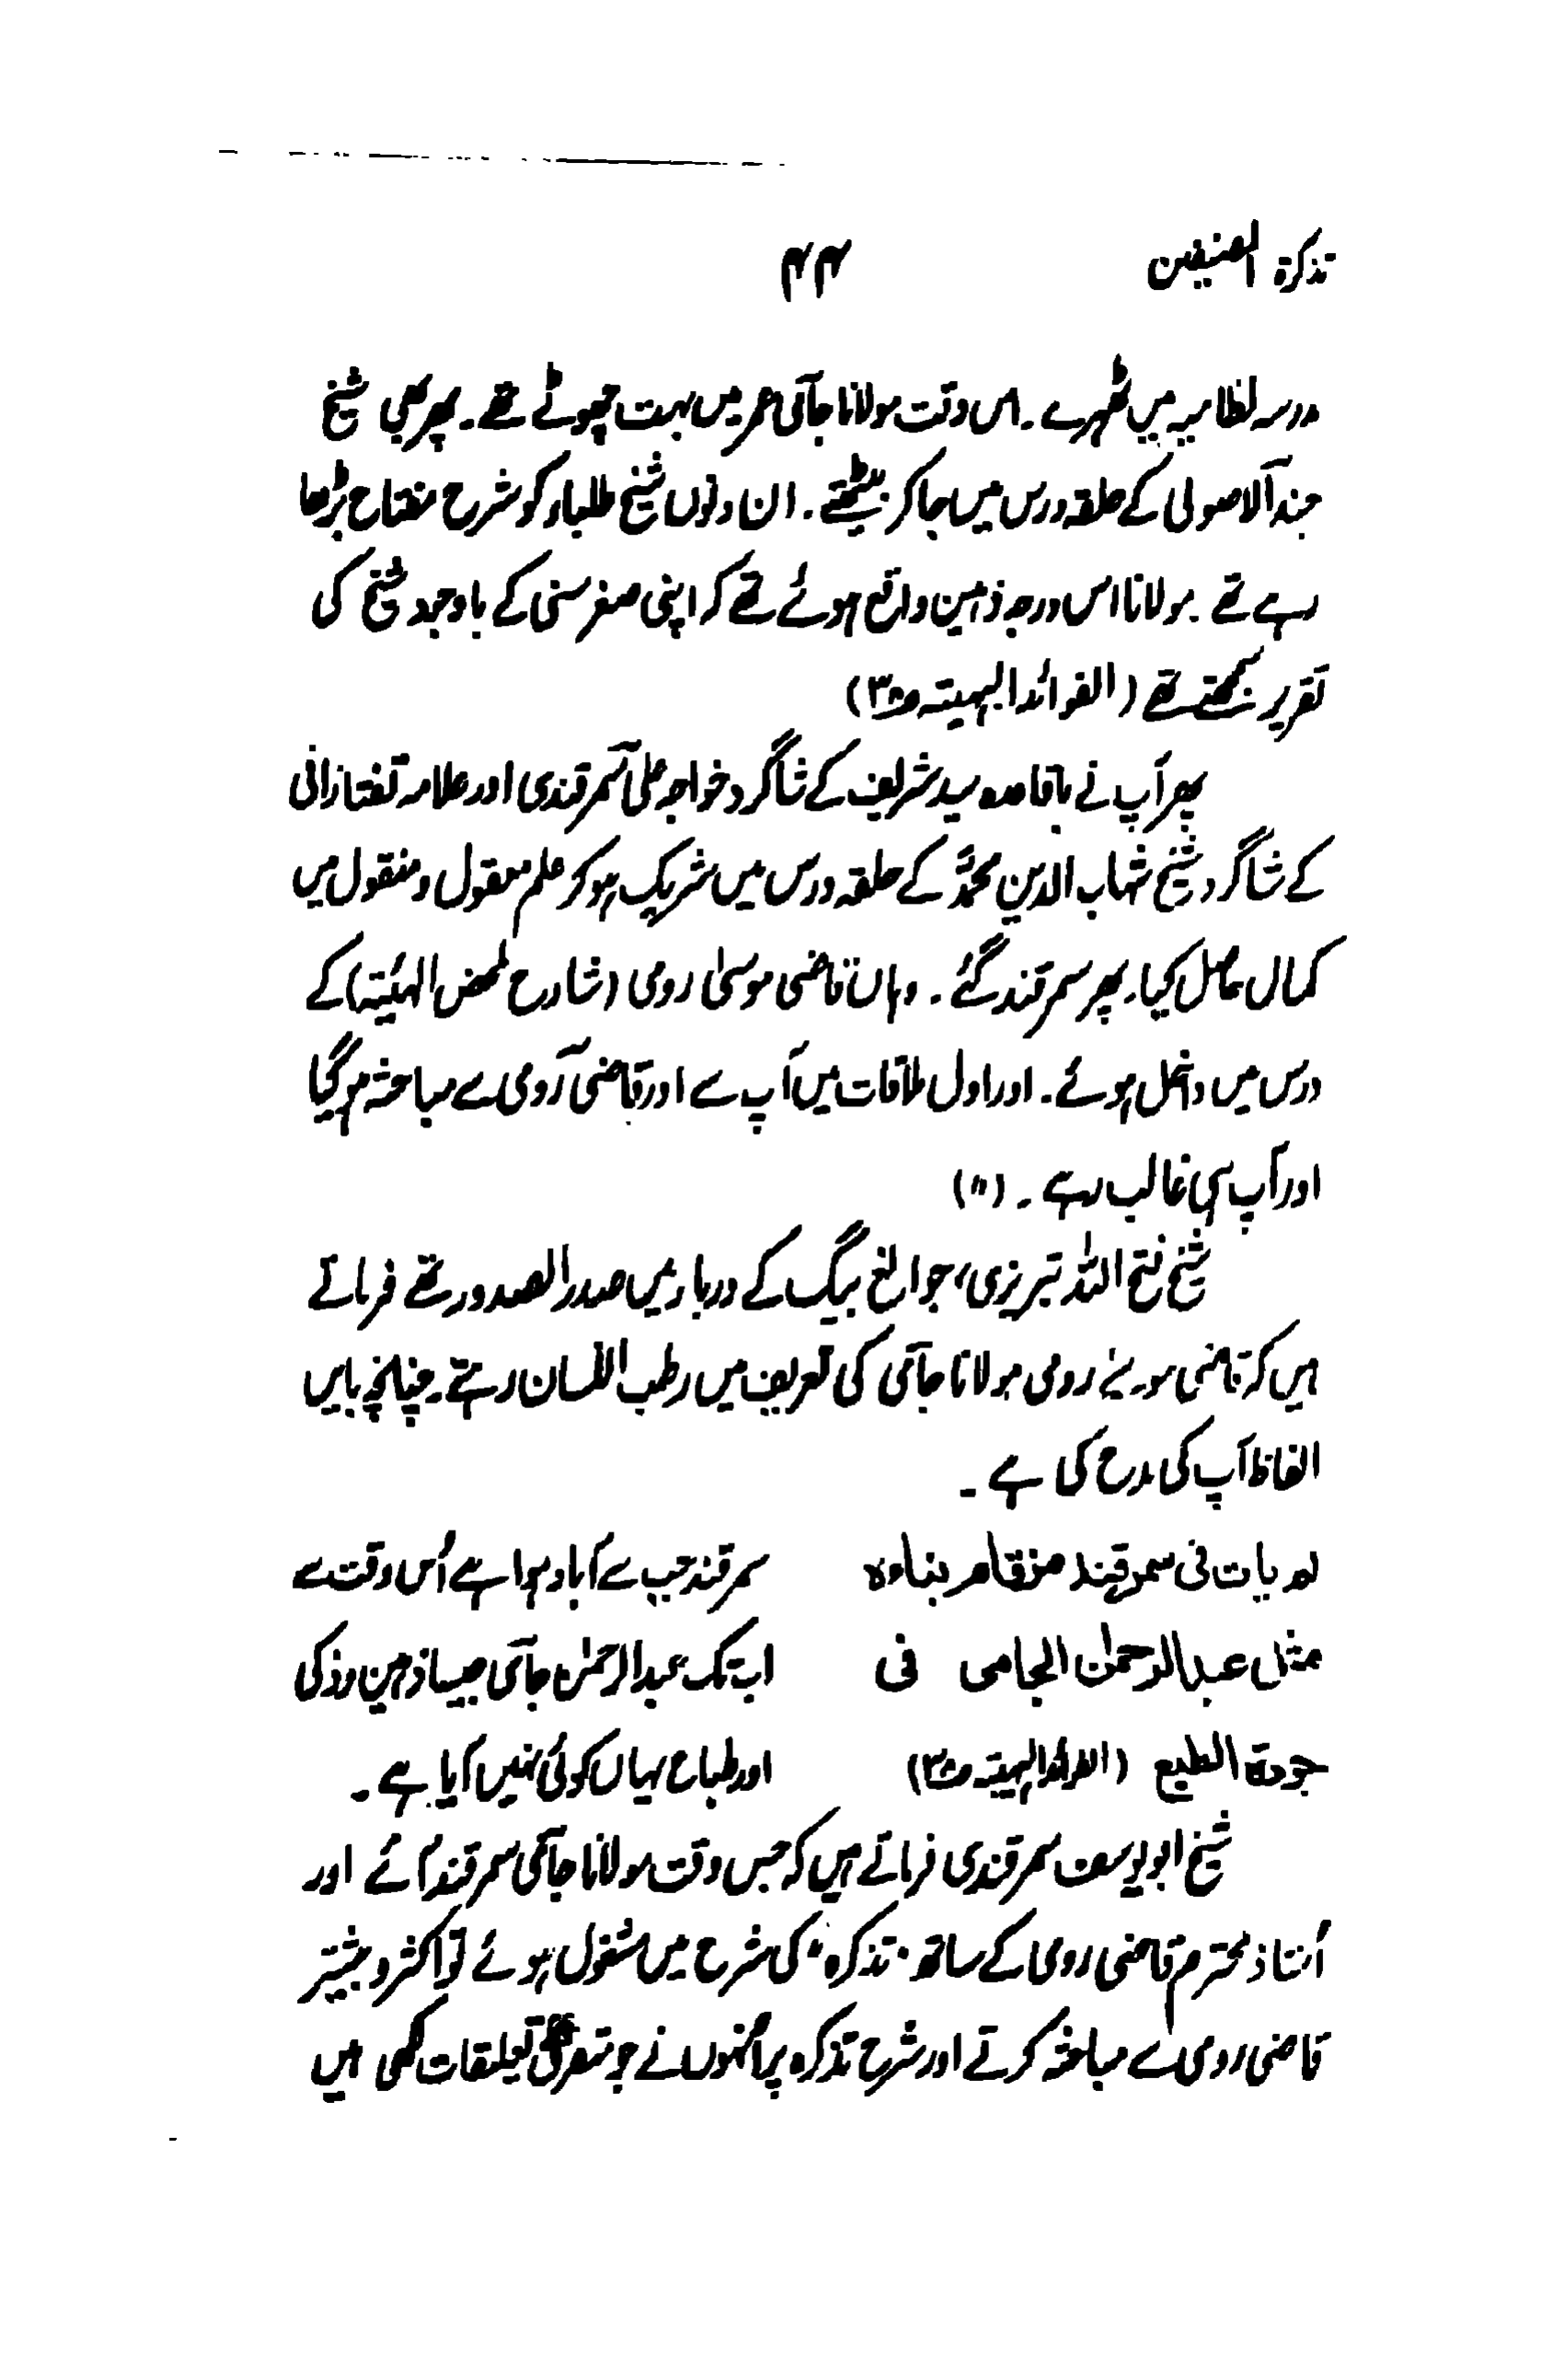 تذکرة المصنفین ۴۴
مدرسہ نظامیہ میں ٹھہرے ۔ اس وقت مولانا جامی عمر میں بہت چھوٹے تھے ۔ پھر بھی شیخ
جند الاصولی کے حلقہ درس میں جا کر بیٹھتے ۔ ان دنوں شیخ طلباء کو شرح مفتاح پڑھا
رہے تھے ۔ مولانا اس درجہ ذہین واقع ہوئے تھے کہ اپنی صغر سنی کے باوجود شیخ کی
تقریر سمجھتے تھے (الفوائد البہیتہ ص۳۸)
پھر آپ نے باقاعدہ سید شریف کے شاگرد خواجہ علی سمرقندی اور علامہ تفتازانی
کے شاگرد شیخ شہاب الدین محمدؒ کے حلقہ درس میں شریک ہو کر علم معقول و منقول میں
کمال حاصل کیا ۔ پھر سمرقند گئے ۔ وہاں قاضی موسیٰ رومی (شارح ملخص الہیئتہ) کے
درس میں داخل ہوئے ۔ اور اول ملاقات میں آپ سے اور قاضی رومی سے مباحثہ ہو گیا
اور آپ ہی غالب رہے ۔ (〃)
شیخ فتح اللہ تبریزی، جو الغ بیگ کے دربار میں صدر الصدور تھے فرماتے
ہیں کہ قاضی موسےٰ رومی مولانا جامی کی تعریف میں رطب اللسان رہتے ۔ چنانچہ بایں
الفاظ آپ کی مدح کی ہے ۔
لم یات فی سمرقند منذ قام بناءہ سمرقند جب سے آباد ہوا ہے اُس وقت سے
مثل عبدالرحمٰن الجامی فی اب تک عبدالرحمٰن جامی جیسا ذہین و ذکی
جودة الطبع (الفوائد البہیتہ ص۳۸) اور طباع یہاں کوئی نہیں آیا ہے ۔
شیخ ابو یوسف سمرقندی فرماتے ہیں کہ جس وقت مولانا جامی سمرقند آئے اور
اُستاذ محترم قاضی رومی کے ساتھ "تذکرہ" کی شرح میں مشغول ہوئے تو اکثر و بیشتر
قاضی رومی سے مباحثہ کرتے اور شرح تذکرہ پر اُنہوں نے جو متفرق تعلیقات لکھی ہیں